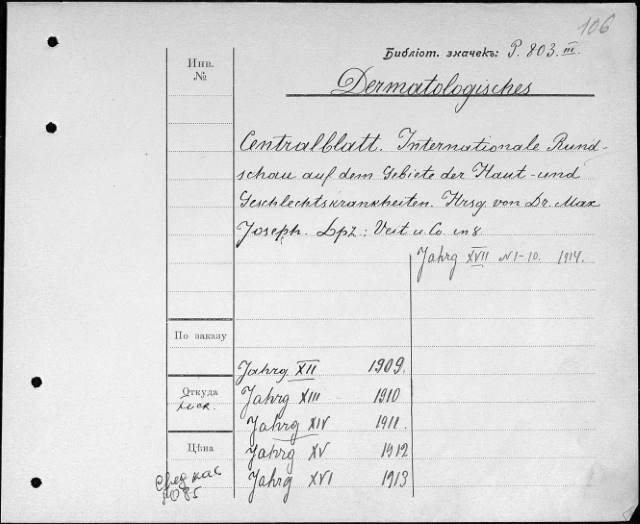 106
Библіот. значекъ: P. 803. III.
Инв.
№
Dermatologisches
Centralblatt. Internationale Rund-
schau auf dem Gebiete der Haut-und
Geschlechtskrankheiten. Hrsg. von Dr. Max
Joseph. Lpz.: Veit u. Co. in 8.
Jahrg XVII N 1-10. 1914.
По заказу
Jahrg XII 1909.
Откуда
Jahrg XIII 1910
Jahrg XIV 1911.
Цѣна
Jahrg XV 1912
Jahrg XVI 1913